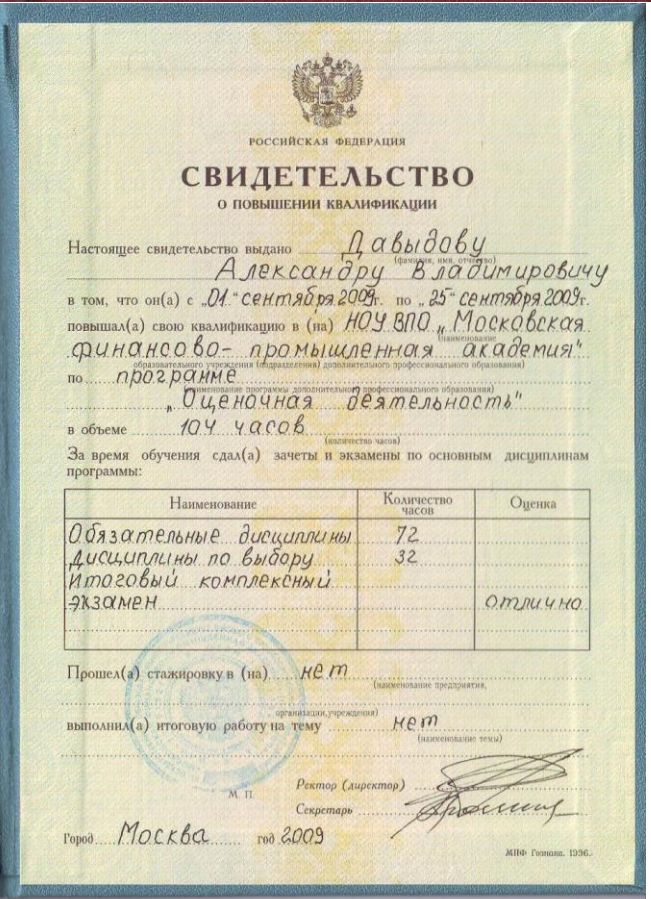 РОССИЙСКАЯ ФЕДЕРАЦИЯ
СВИДЕТЕЛЬСТВО
О ПОВЫШЕНИИ КВАЛИФИКАЦИИ
Настоящее свидетельство выдано Давыдову
(фамилия, имя, отчество)
Александру Владимировичу
в том, что он(а) с „01“ сентября 2009г. по „25“ сентября 2009г.
повышал(а) свою квалификацию в (на) НОУ ВПО „Московская
(наименование
финансово-промышленная академия"
образовательного учреждения (подразделения) дополнительного профессионального образования)
по программе
(наименование программы дополнительного профессионального образования)
„Оценочная деятельность"
в объеме 104 часов
(количество часов)
За время обучения сдал(а) зачеты и экзамены по основным дисциплинам
программы:
Наименование Количество часов Оценка
Обязательные дисциплины 72
Дисциплины по выбору 32
Итоговый комплексный
экзамен отлично
Прошел(а) стажировку в (на) нет
(наименование предприятия,
организации,учреждения)
выполнил(а) итоговую работу на тему нет
(наименование темы)
Ректор (директор)
М. П
Секретарь
Город Москва год 2009
МПФ Гознака. 1996.